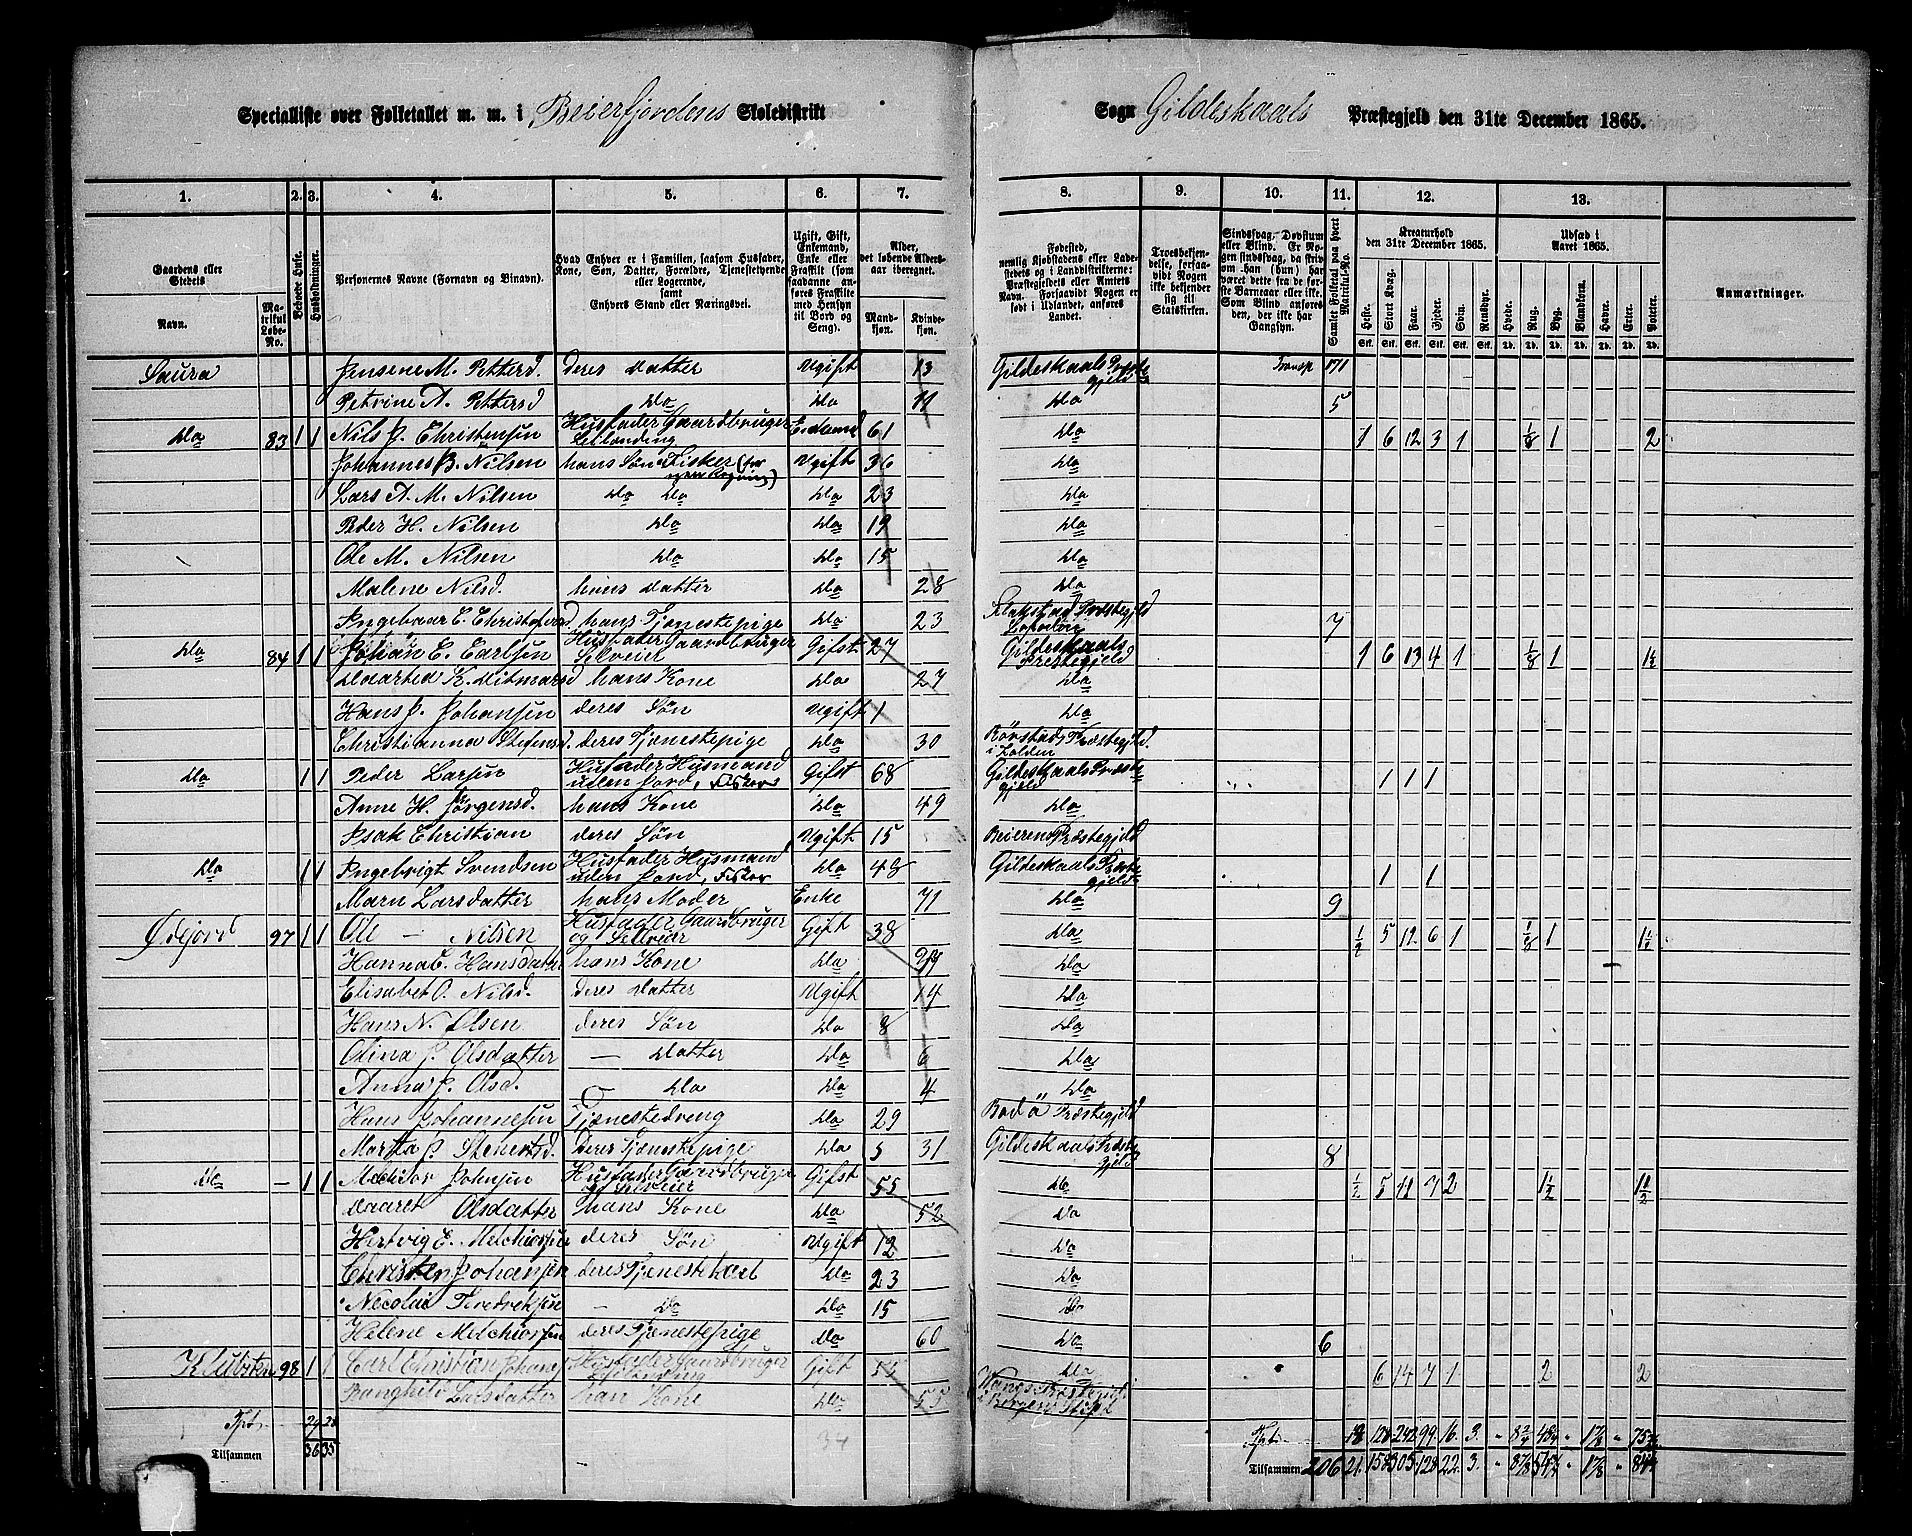 Specialliste over Folketallet m. m. i Beierfjordens Skoledistrikt
Sogn Gildeskaals Præstegjeld den 31te December 1865.
1. 2. 3. 4. 5. 6. 7. 8. 9. 10. 11. 12. 13.
Gaardens eller Stedets
Navn.
Matrikul Løbe-No.
Beboede Huse.
Husholdninger.
Personernes Navne (Fornavn og Binavn).
Hvad Enhver er i Familien, saasom Husfader, Kone, Søn, Datter, Forældre, Tjenestetyende eller Logerende, samt Enhvers Stand eller Næringsvei.
Ugift, Gift, Enkemand, Enke eller Fraskilt (som saadanne anføres Fraskilte med Hensyn til Bord og Seng).
Alder, det løbende Alders-aar iberegnet.
Mandkjøn. Kvindekjøn.
Fødested, nemlig Kjøbstadens eller Ladestedets og i Landdistrikterne: Præstegjeldets eller Amtets Navn. Forsaavidt Nogen er født i Udlandet, anføres Landet.
Troesbekjendelse, forsaavidt Nogen ikke bekjender sig til Statskirken.
Sindssvag, Døvstum eller Blind. Er Nogen sindssvag, da skrives om han (hun) har været dette fra de første Barneaar eller ikke. Som Blind anføres den, der ikke har Gangsyn.
Samlet Folketal paa hvert Matrikul-No.
Kreaturhold den 31te December 1865.
Heste. Stort Kvæg. Faar. Gjeder. Svin. Rensdyr.
Udsæd i Aaret 1865.
Hvede. Rug. Byg. Blandkorn. Havre. Erter. Poteter.
Anmærkninger.
Saura Jensene M. Pettersd. deres Datter Ugift 13 Gildeskaals Præstegjeld Transp 171
Petrine A. Pettersd do do 11 do 5
do 83 1 1 Nils P. Christensen Husfader Gaardbruger Leilending Enkemd 61 do 1 6 12 3 1 1/8 1 2
Johannes B. Nilsen hans Søn Fisker Ugift 36 do
Lars A. M. Nilsen do do do 23 do
Peder H. Nilsen do do 19 do
Ole M. Nilsen do do 15 do
Malene Nilsd. hans Datter do 28 do
Ingebaar C. Christofersd hans Tjenestepige do 23 Flakstad Præstegjeld Lofoten 7
do 84 1 1 Johan E. Carlsen Husfader Gaardbruger Selveier Gift 27 Gildeskaals Præstegjeld 1 6 13 4 1 1/8 1 1½
K. Ditmarsd hans Kone do 27 do
Hans P. Johansen deres Søn Ugift 1 do
Christianna Stefensd. deres Tjenestepige do 30 Rørstads Præstegjeld. i Folden
do 1 1 Peder Larsen Husfader Husmand uden Jord, Fisker Gift 68 Gildeskaals Præstegjeld 1 1 1
Anne H. Jørgensd. hans Kone do 49 do
Isak Christian deres Søn Ugift 15 Beierens Præstegjeld
do 1 1 Ingebrigt Svendsen Husfader Husmand uden Jord, Fisker do 48 Gildeskaals Præstegjeld 1 1
Marn Larsdatter hans Moder Enke 71 do 9
Ødejord 97 1 1 Ole - Nilsen Husfader Gaardbruger og Selveier Gift 38 do ½ 5 12 6 1 1/8 1 1½
Hanna C. Hansdatter hans Kone do do
Elisabet O. Nilsd. deres Datter Ugift 14 do
Hans N. Olsen deres Søn do 8 do
Olina P. Olsdatter — Datter do 6 do
Anna P. Olsd. — do do 4 do
Hans Johannesen Tjenestedreng do 29 Bodø Præstegjeld
Martha P. Stenersd. deres Tjenestepige do 5 31 Gildeskaals Præstegjeld 8
do - 1 1 Melchior Johnsen Husfader Gaardbruger og Selveier Gift 55 do ½ 5 11 7 2 1½ 1½
Maaret Olsdatter hans Kone do 52 do
Hertvig E. Melchiorsen deres Søn Ugift 12 do
Christen Johansen deres Tjenestekarl do 23 do
Necolai Fredreksen — do do 15 do
Helene Melchiorsen deres Tjenestepige do 60 do 6
98 1 1 Carl Christian Husfader Gaardbruger Leilending Gift 55 do 6 14 7 1 2 2
Ranghild Larsdatter han Kone do 55 Præstegjeld i Bergens Stift
Tpt. 29 28
Tilsammen 36 35
34
Tpt.
Tilsammen 206